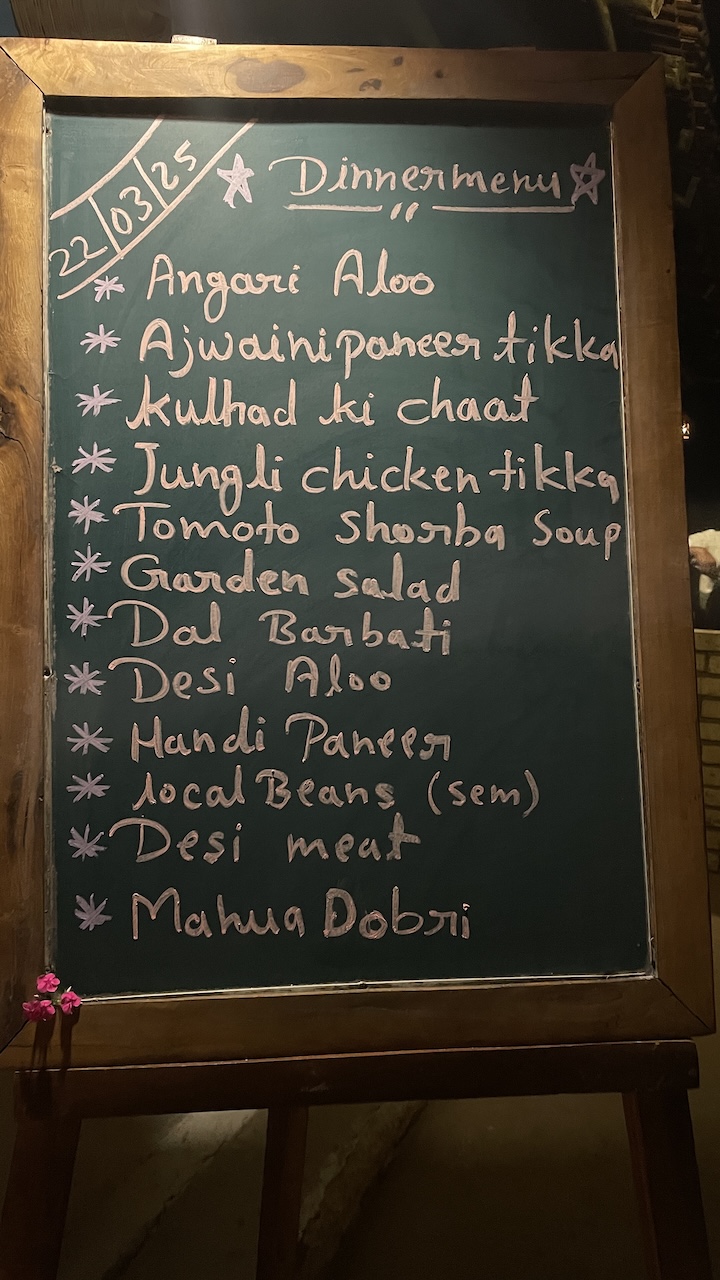 22/03/25
Dinnermenu
Angari Aloo
Ajwaini paneer tikka
Kulhad ki chaat
Jungli chicken tikka
Tomoto Shorba Soup
Garden salad
Dal Barbati
Desi Aloo
Handi Paneer
local Beans (sem)
Desi meat
Mahua Dobri